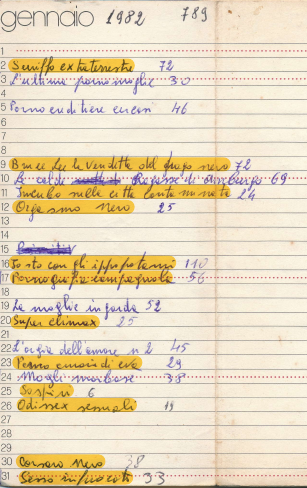 gennaio 1982 789
1
2 Sceriffo extraterrestre 72
3 L'ultima pornomoglie 30
4
5 Porno ereditiere 46
6
7
8
9 Bruce Lee la vendetta del drago nero 72
10 Le calde Ragazze di Amburgo 69
11 Incubo sulla città contaminata 24
12 Orgasmo nero 25
13
14
15
16 Io sto con gli ippopotami 110
17 Pornografia campagnola 56
18
19 La moglie ingorda 52
20 Super climax 25
21
22 L'orgia dell'amore n 2 45
23 29
24 Mogli morbose 38
25 6
26 Odissex sensuali 19
27
28
29
30 Corsaro Nero 38
31 Sesso infuocato 33